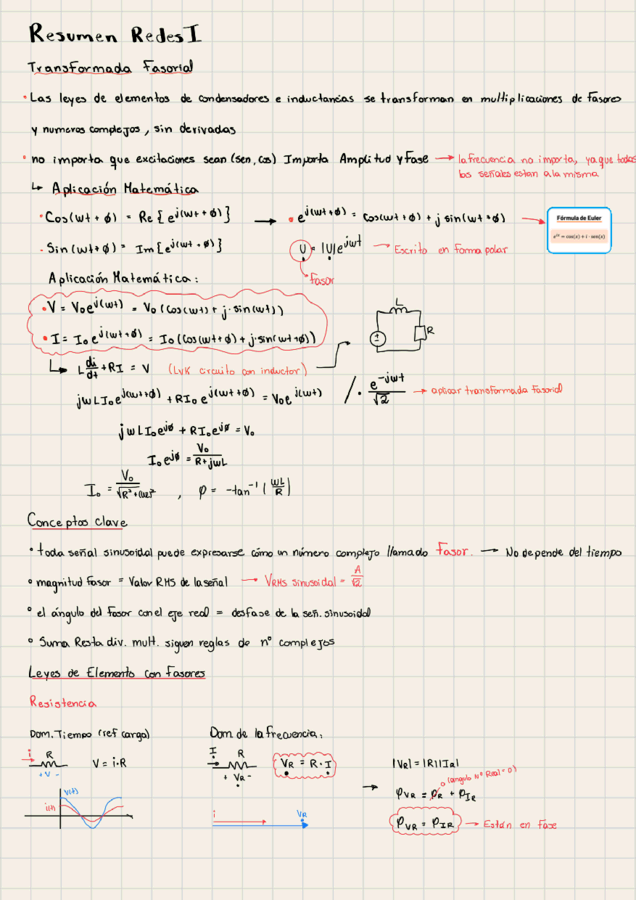 Resumen Redes I
Transformada Fasorial
• Las leyes de elementos de condensadores e inductancias se transforman en multiplicaciones de fasores
y numeros complejos, sin derivadas
• no importa que excitaciones sean (sen, cos) Importa Amplitud y Fase → la frecuencia no importa, ya que todas
las señales estan a la misma
↳ Aplicación Matemática
• Cos(wt + ø) = Re{e^j(wt+ø)} → • e^j(wt+ø) = cos(wt+ø) + j sin(wt+ø) →
Fórmula de Euler
e^ix = cos(x) + i · sen(x)
• Sin(wt+ø) = Im{e^j(wt+ø)}
U = |U|e^jwt → Escrito en forma polar
fasor
Aplicación Matemática:
• V = V₀e^j(wt) = V₀(cos(wt) + j·sin(wt))
• I = I₀e^j(wt+ø) = I₀(cos(wt+ø) + j·sin(wt+ø))
L
R
↳ L di/dt + RI = V (LVK circuito con inductor)
jwLI₀e^j(wt+ø) + RI₀e^j(wt+ø) = V₀e^j(wt) /· e^-jwt/√2 → aplicar transformada fasorial
jwLI₀e^jø + RI₀e^jø = V₀
I₀e^jø = V₀/R+jwL
I₀ = V₀/√R²+(wL)² , φ = -tan⁻¹(wL/R)
Conceptos clave
• toda señal sinusoidal puede expresarse cómo un número complejo llamado Fasor. → No depende del tiempo
• magnitud Fasor = Valor RMS de la señal → V RMS sinusoidal = A/√2
• el ángulo del Fasor con el eje real = desfase de la señ. sinusoidal
• Suma Resta div. mult. siguen reglas de n° complejos
Leyes de Elemento con Fasores
Resistencia
Dom. Tiempo (ref carga)
Dom de la frecuencia:
i R
+ V -
V = i·R
I R
+ V_R -
V_R = R·I
|V_R| = |R||I_R|
0 (angulo N° Real = 0)
φ_VR = φ_R + φ_IR
φ_VR = φ_IR → Están en Fase
V(t)
i(t)
i
V_R